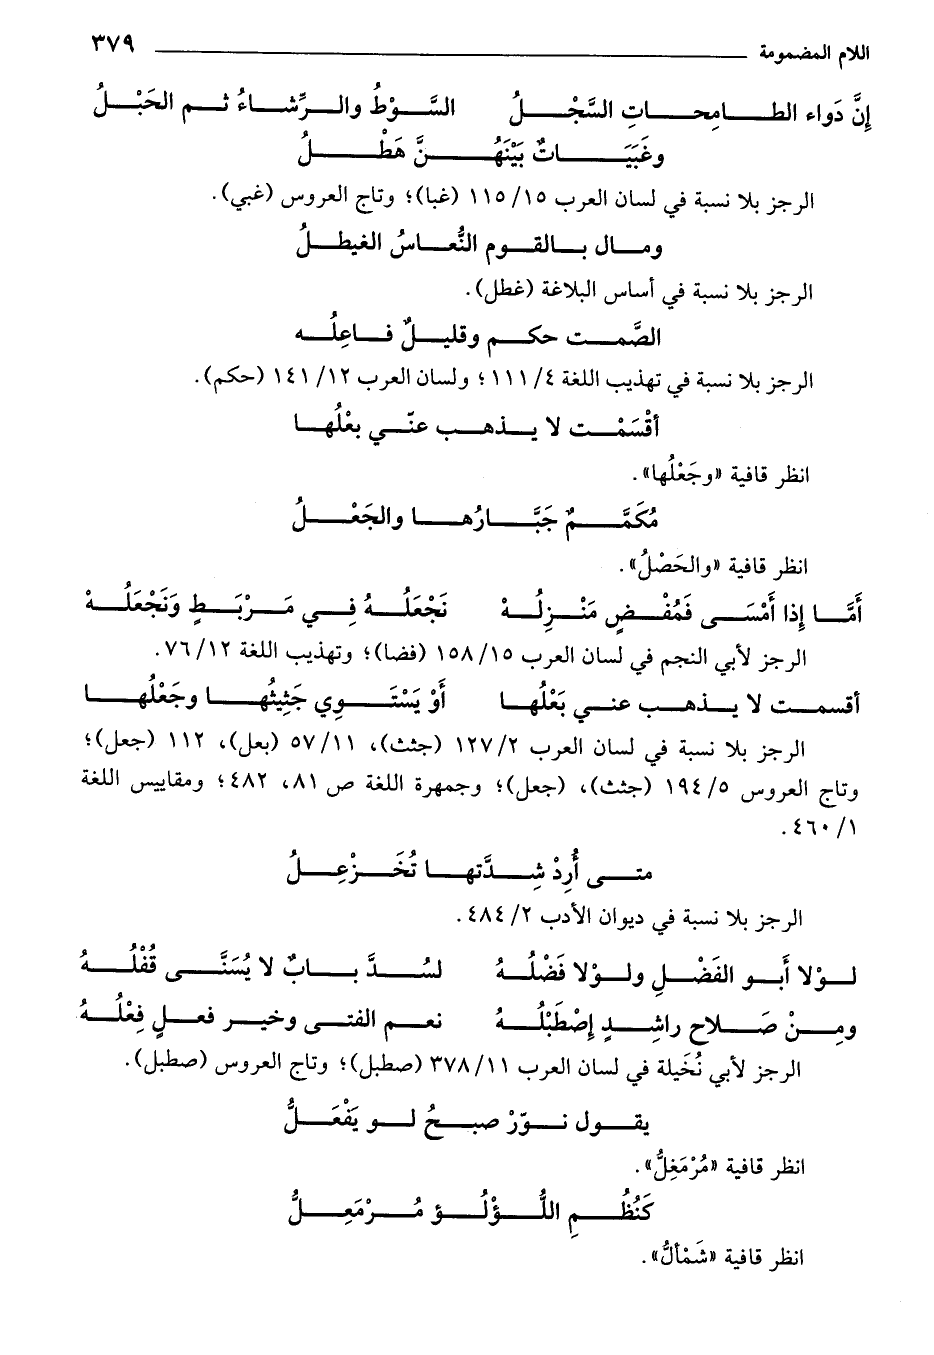 اللام المضمومة ٣٧٩
إنَّ دَواء الطامِحاتِ السَّجْلُ السَّوْطُ والرِّشاءُ ثم الحَبْلُ
وغَبَيَاتٌ بَيْنَهُنَّ هَطْلُ
الرجز بلا نسبة في لسان العرب ١١٥/١٥ (غبا)؛ وتاج العروس (غبي).
ومال بالقوم النُّعاسُ الغيطلُ
الرجز بلا نسبة في أساس البلاغة (غطل).
الصَّمت حكم وقليلٌ فاعِلُه
الرجز بلا نسبة في تهذيب اللغة ١١١/٤؛ ولسان العرب ١٤١/١٢ (حكم).
أقْسَمْت لا يذهب عنّي بعْلُها
انظر قافية «وجَعْلُها».
مُكَمَّمٌ جَبَّارُها والجَعْلُ
انظر قافية «والحَصْلُ».
أمَّا إذا أمْسَى فَمُفْضٍ مَنْزِلُهْ نَجْعَلُهُ فِي مَرْبَطٍ وَنَجْعَلُهْ
الرجز لأبي النجم في لسان العرب ١٥٨/١٥ (فضا)؛ وتهذيب اللغة ٧٦/١٢.
أقسمت لا يذهب عني بَعْلُها أَوْ يَسْتَوِي جَثِيثُها وجَعْلُها
الرجز بلا نسبة في لسان العرب ١٢٧/٢ (جثث)، ٥٧/١١ (بعل)، ١١٢ (جعل)؛
وتاج العروس ١٩٤/٥ (جثث)، (جعل)؛ وجمهرة اللغة ص ٨١، ٤٨٢؛ ومقاييس اللغة
٤٦٠/١.
متى أُرِدْ شِدَّتها تُخَزْعِلُ
الرجز بلا نسبة في ديوان الأدب ٤٨٤/٢.
لوْلا أَبو الفَضْلِ ولوْلا فَضْلُهُ لسُدَّ بابٌ لا يُسَنَّى قُفْلُهُ
ومِنْ صَلاح راشِدٍ إصْطَبْلُهُ نعم الفتى وخير فعلٍ فِعْلُهُ
الرجز لأبي نُخَيلة في لسان العرب ٣٧٨/١١ (صطبل)؛ وتاج العروس (صطبل).
يقول نوّرْ صبحُ لو يَفْعَلُّ
انظر قافية «مُرْمَغِلُّ».
كَنُظُمِ اللُّؤْلُؤِ مُرْمَعِلُّ
انظر قافية «شَمْألُّ».